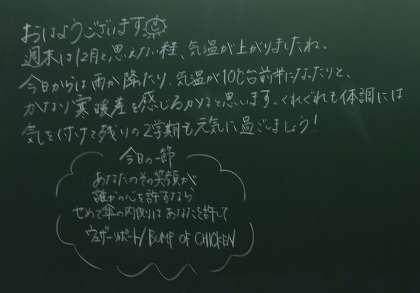 おはようございます
週末は12月と思えない程、気温が上がりましたね。
今日からは雨が降たり、気温が10℃台前半になったりと、
かなり寒暖差を感じるかなと思います。くれぐれも体調には
気を付けて残りの2学期も元気に過ごしましょう!
今日の一節
あなたのその笑顔が
誰かの心を許すなら
せめて傘の内側は あなたを許して
ウェザーリポート/BUMP OF CHICKEN